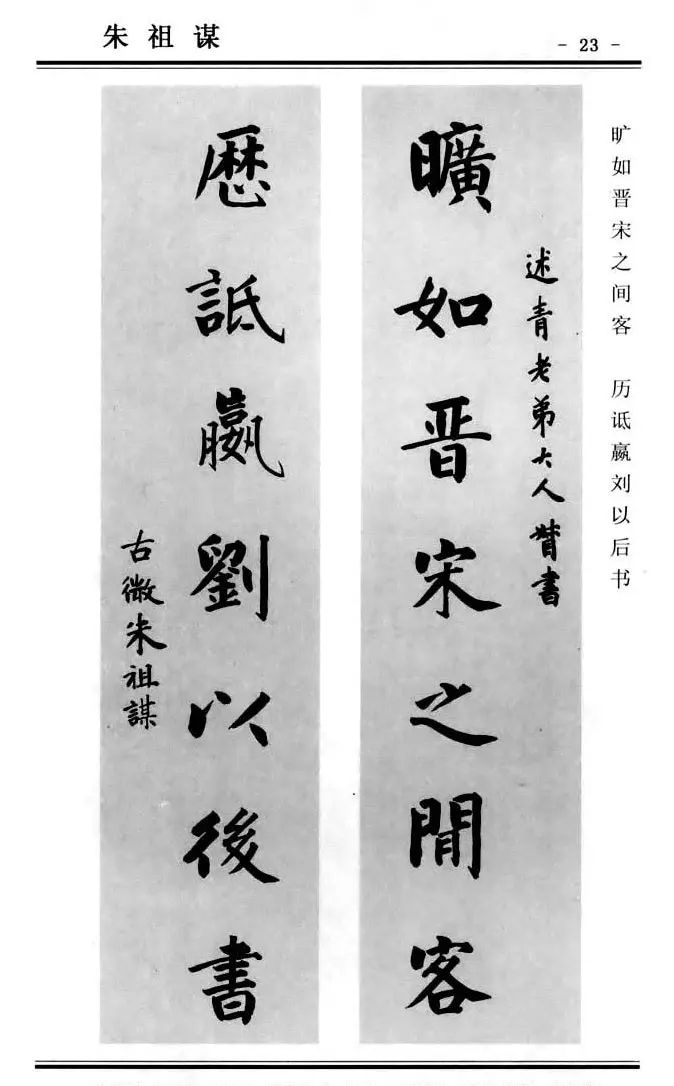 朱祖谋
- 23 -
旷如晋宋之间客 历诋嬴刘以后书
述青老弟大人督書
曠如晋宋之閒客
歷詆嬴劉以後書
古微朱祖謀